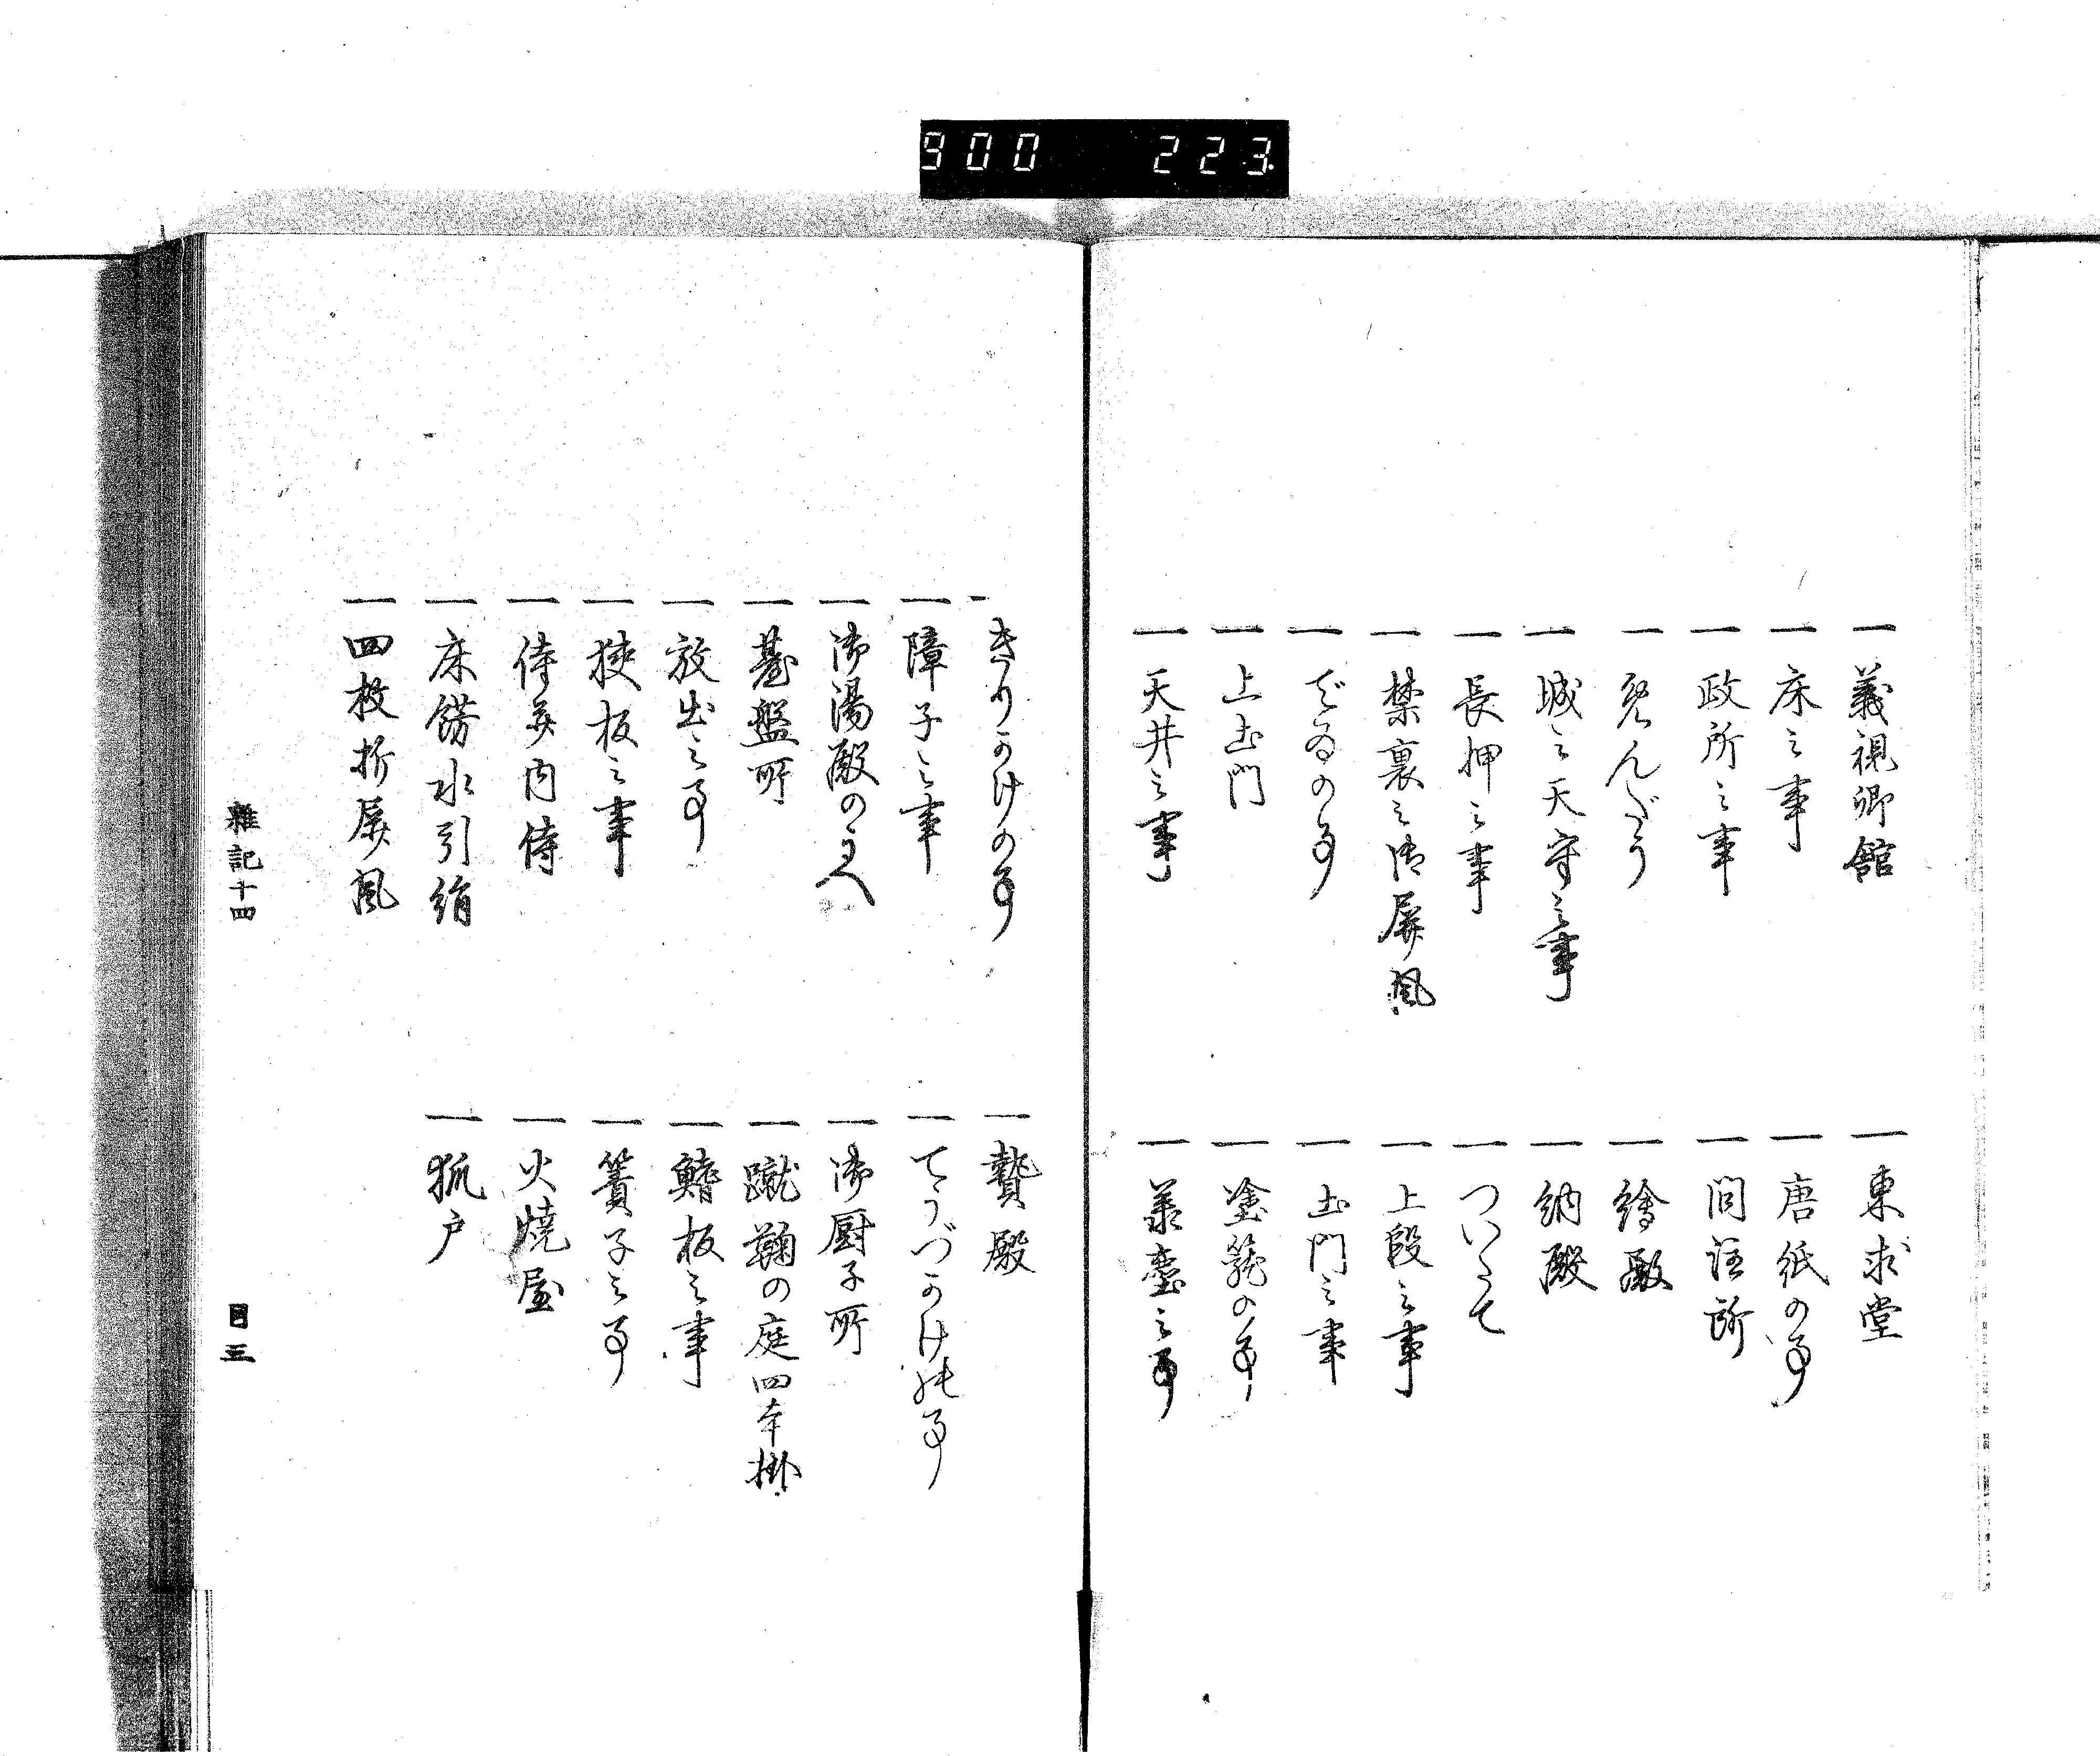 900 223
一義視卿館
一東求堂
一床之事
一唐紙の事
一政所之事
一問注所
一ゑんだう
一繪殿
一城之天守之事
一納殿
一長押之事
一ついたて
一禁裏之御屏風
一上段之事
一でゐの事
一土門之事
一上土門
一塗籠の事
一天井之事
一承塵之事
一きりかけの事
一贄殿
一障子之事
一てうづかけの事
一御湯殿のうへ
一御厨子所
一䑓盤所
一蹴鞠の庭四本掛
一放出之事
一鰭板之事
一狭板之事
一簀子之事
一侍并内侍
一火燒屋
一床餝水引絹
一狐戸
一四枚折屏風
雜記十四
目三